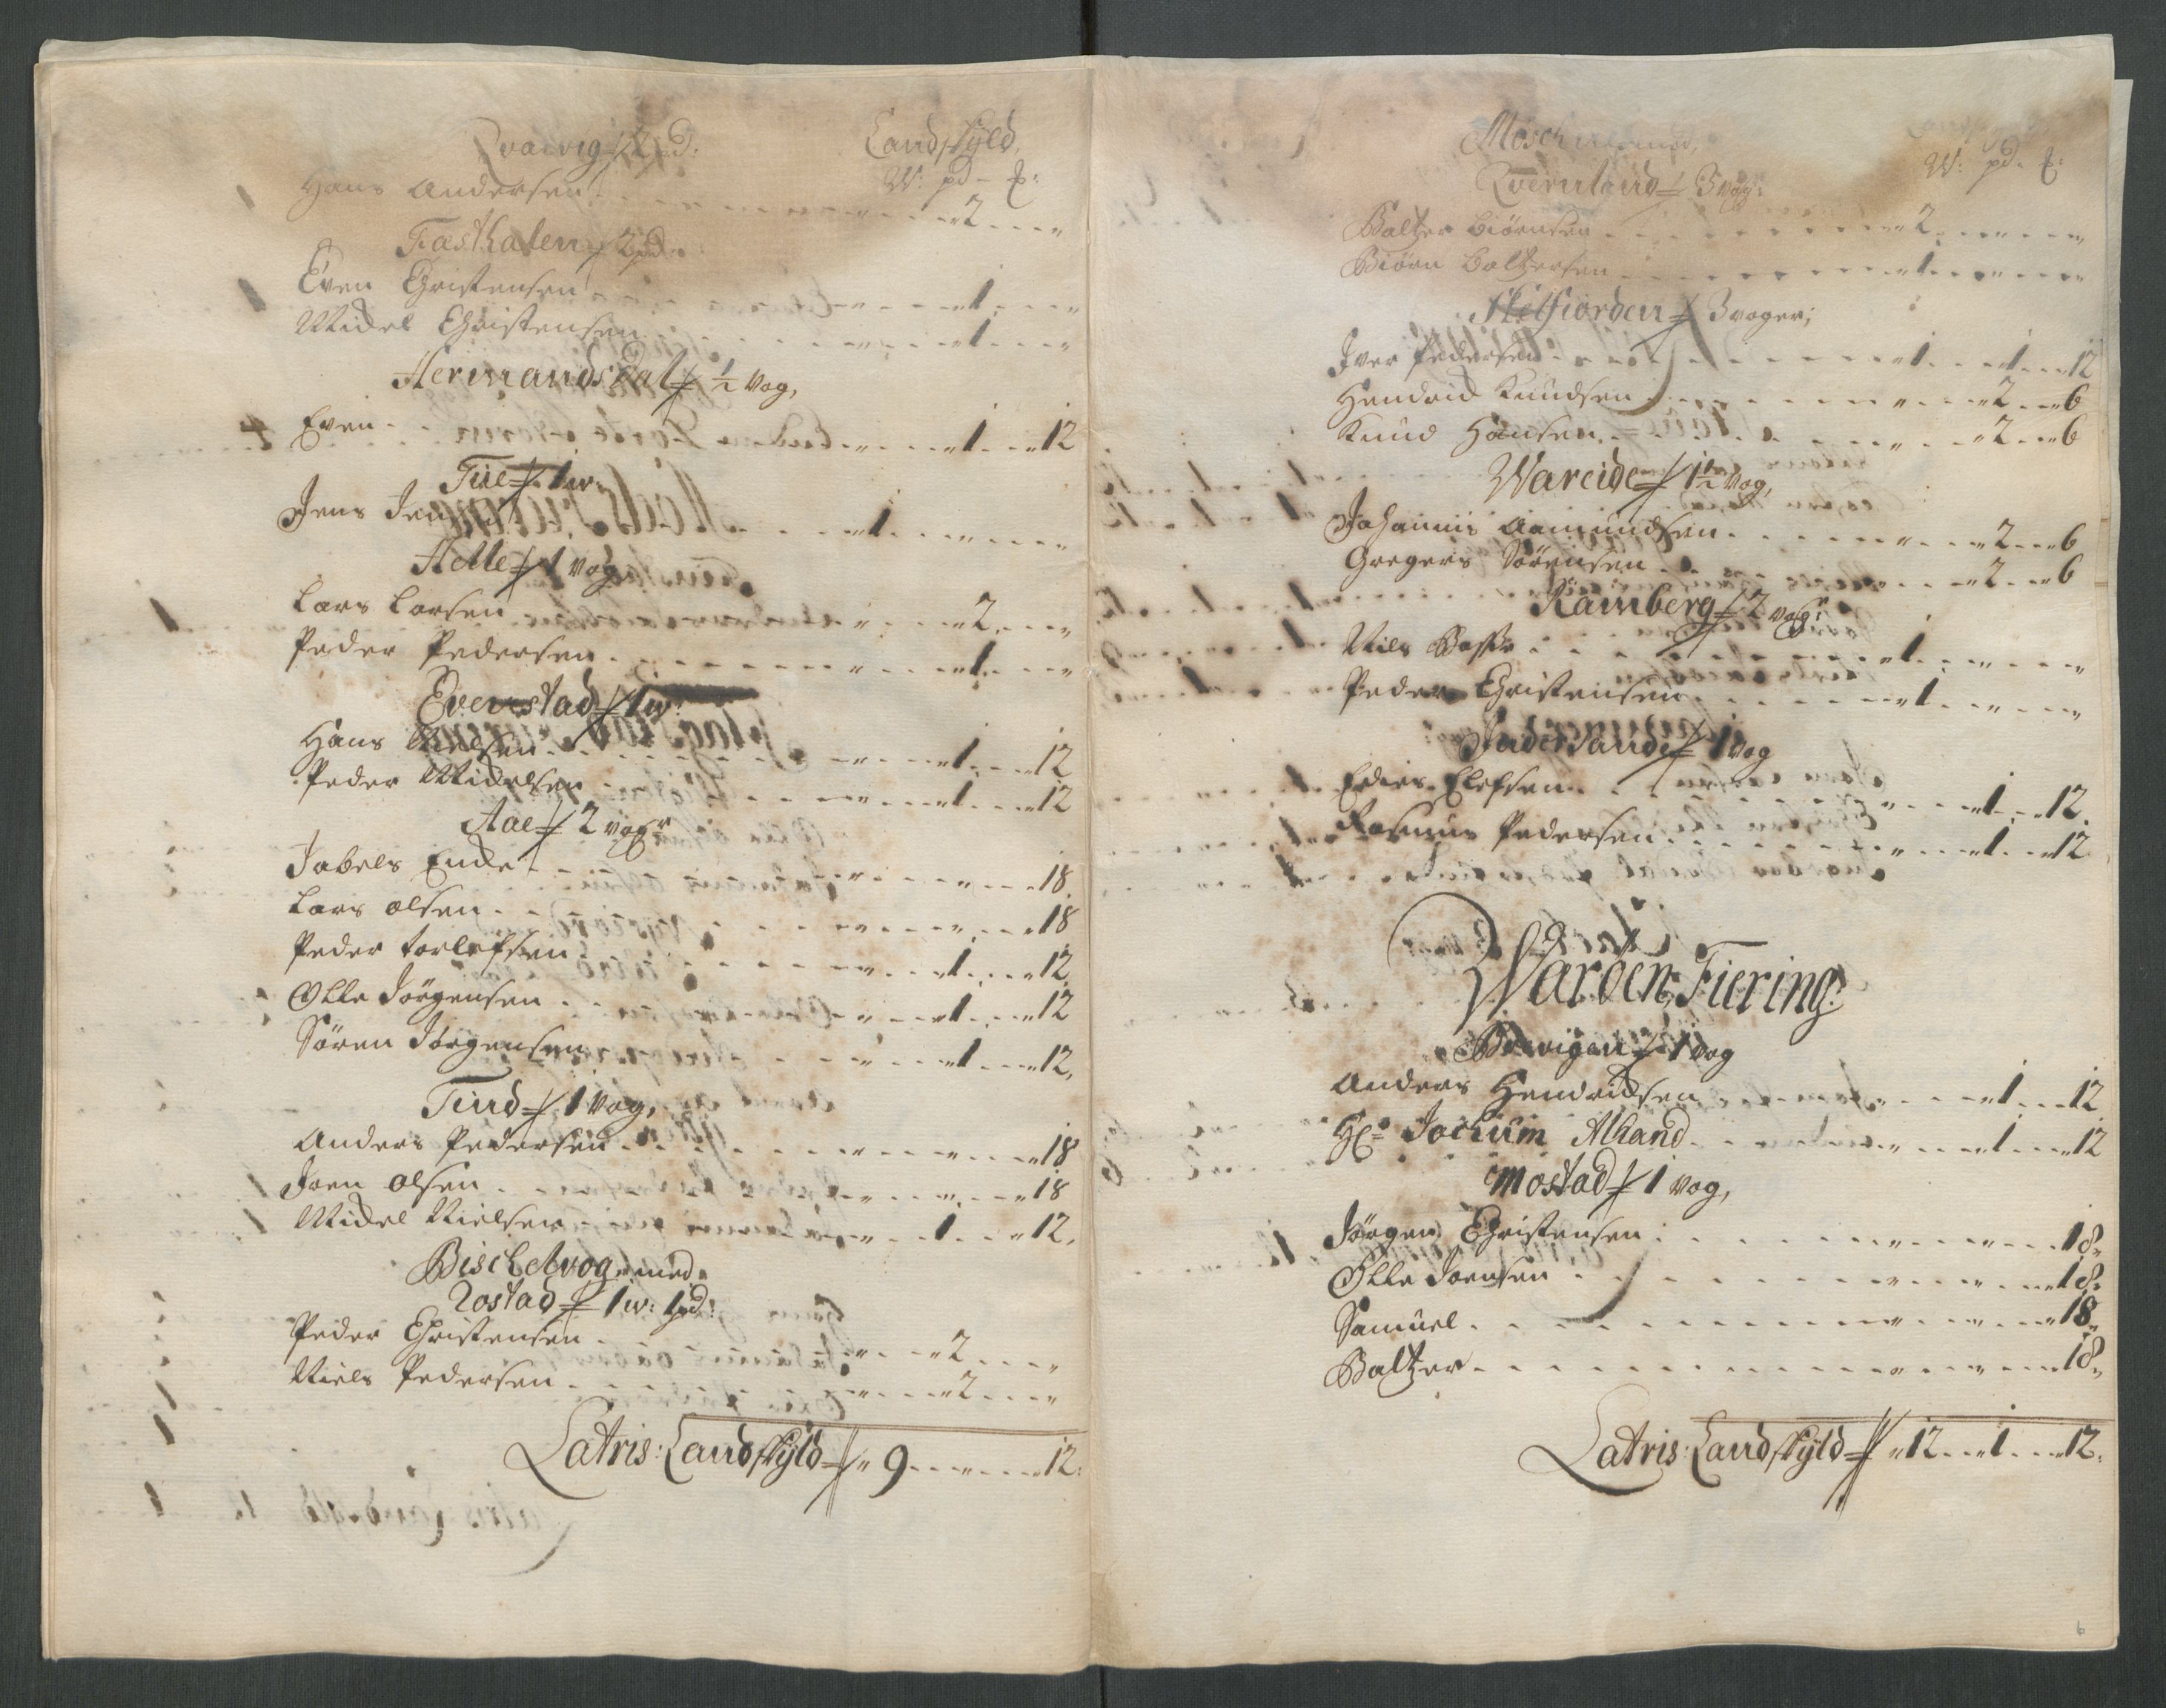 Qvalvig 2 pd:
Landskyld
W: pd - ℔:
Hans Andersen - - - 2 - - -
Fiesthalen 2 pd:
Even Christensen - - - 1 - - -
Michel Christensen - - - 1 - - -
Hermandsdal 1/2 Vog,
Even - - - 1 - - - 12
Tue 1 w:
Jens Jensen - - - 1 - - -
Helle 1 vog
Lars Larsen - - - 2 - - -
Peder Pedersen - - - 1 - - -
Evenstad 1 w:
Hans Nielsen - - - 1 - - - 12
Peder Michelsen - - - 1 - - - 12
Aae 2 voger
Jabels Enche - - - 18
Lars Olsen - - - 18
Peder Torlefsen - - - 1 - - - 12
Olle Jörgensen - - - 1 - - - 12
Sören Jörgensen - - - 1 - - - 12,
Tind 1 Vog,
Anders Pedersen - - - 18
Joen Olsen - - - 18
Michel Nielsen - - - 1 - - - 12,
Bischelvog, med
Rostad 1 w: 1 pd:
Peder Christensen - - - 2 - - -
Niels Pedersen - - - 2 - - -
Latris: Landskyld 9 - - - 12:
W: pd - ℔:
Qvernland 3 vog:
Baltzer Biörnsen - - - 2 - - -
Biörn Baltzersen - - - 1 - - -
Skelfiorden 3 voger;
Iver Pedersen - - - 1 - - - 1 - - - 12
Hendrich Knudsen - - - 2 - - - 6
Knud Hansen - - - 2 - - - 6
Wareide 1 1/2 Vog,
Johannis Aamundsen - - - 2 - - - 6
Gregers Sörensen - - - 2 - - - 6
Ramberg 2 voger
Niels Basse - - - 1 - - -
Peder Christensen - - - 1 - - -
Indersande 1 vog
Edier Elefsen - - - 1 - - - 12.
Rasmus Pedersen - - - 1 - - - 12
Waröen Fiering
Brevigen 1 vog
Anders Hendrichsen - - - 1 - - - 12
Hr: Jochum Alhand - - - 1 - - - 12
Mostad 1 vog,
Jörgen Christensen - - - 18
Olle Joensen - - - 18
Samuel - - - 18
Baltzer - - - 18
Latris: Landskyld 12 - - - 1 - - - 12.
6